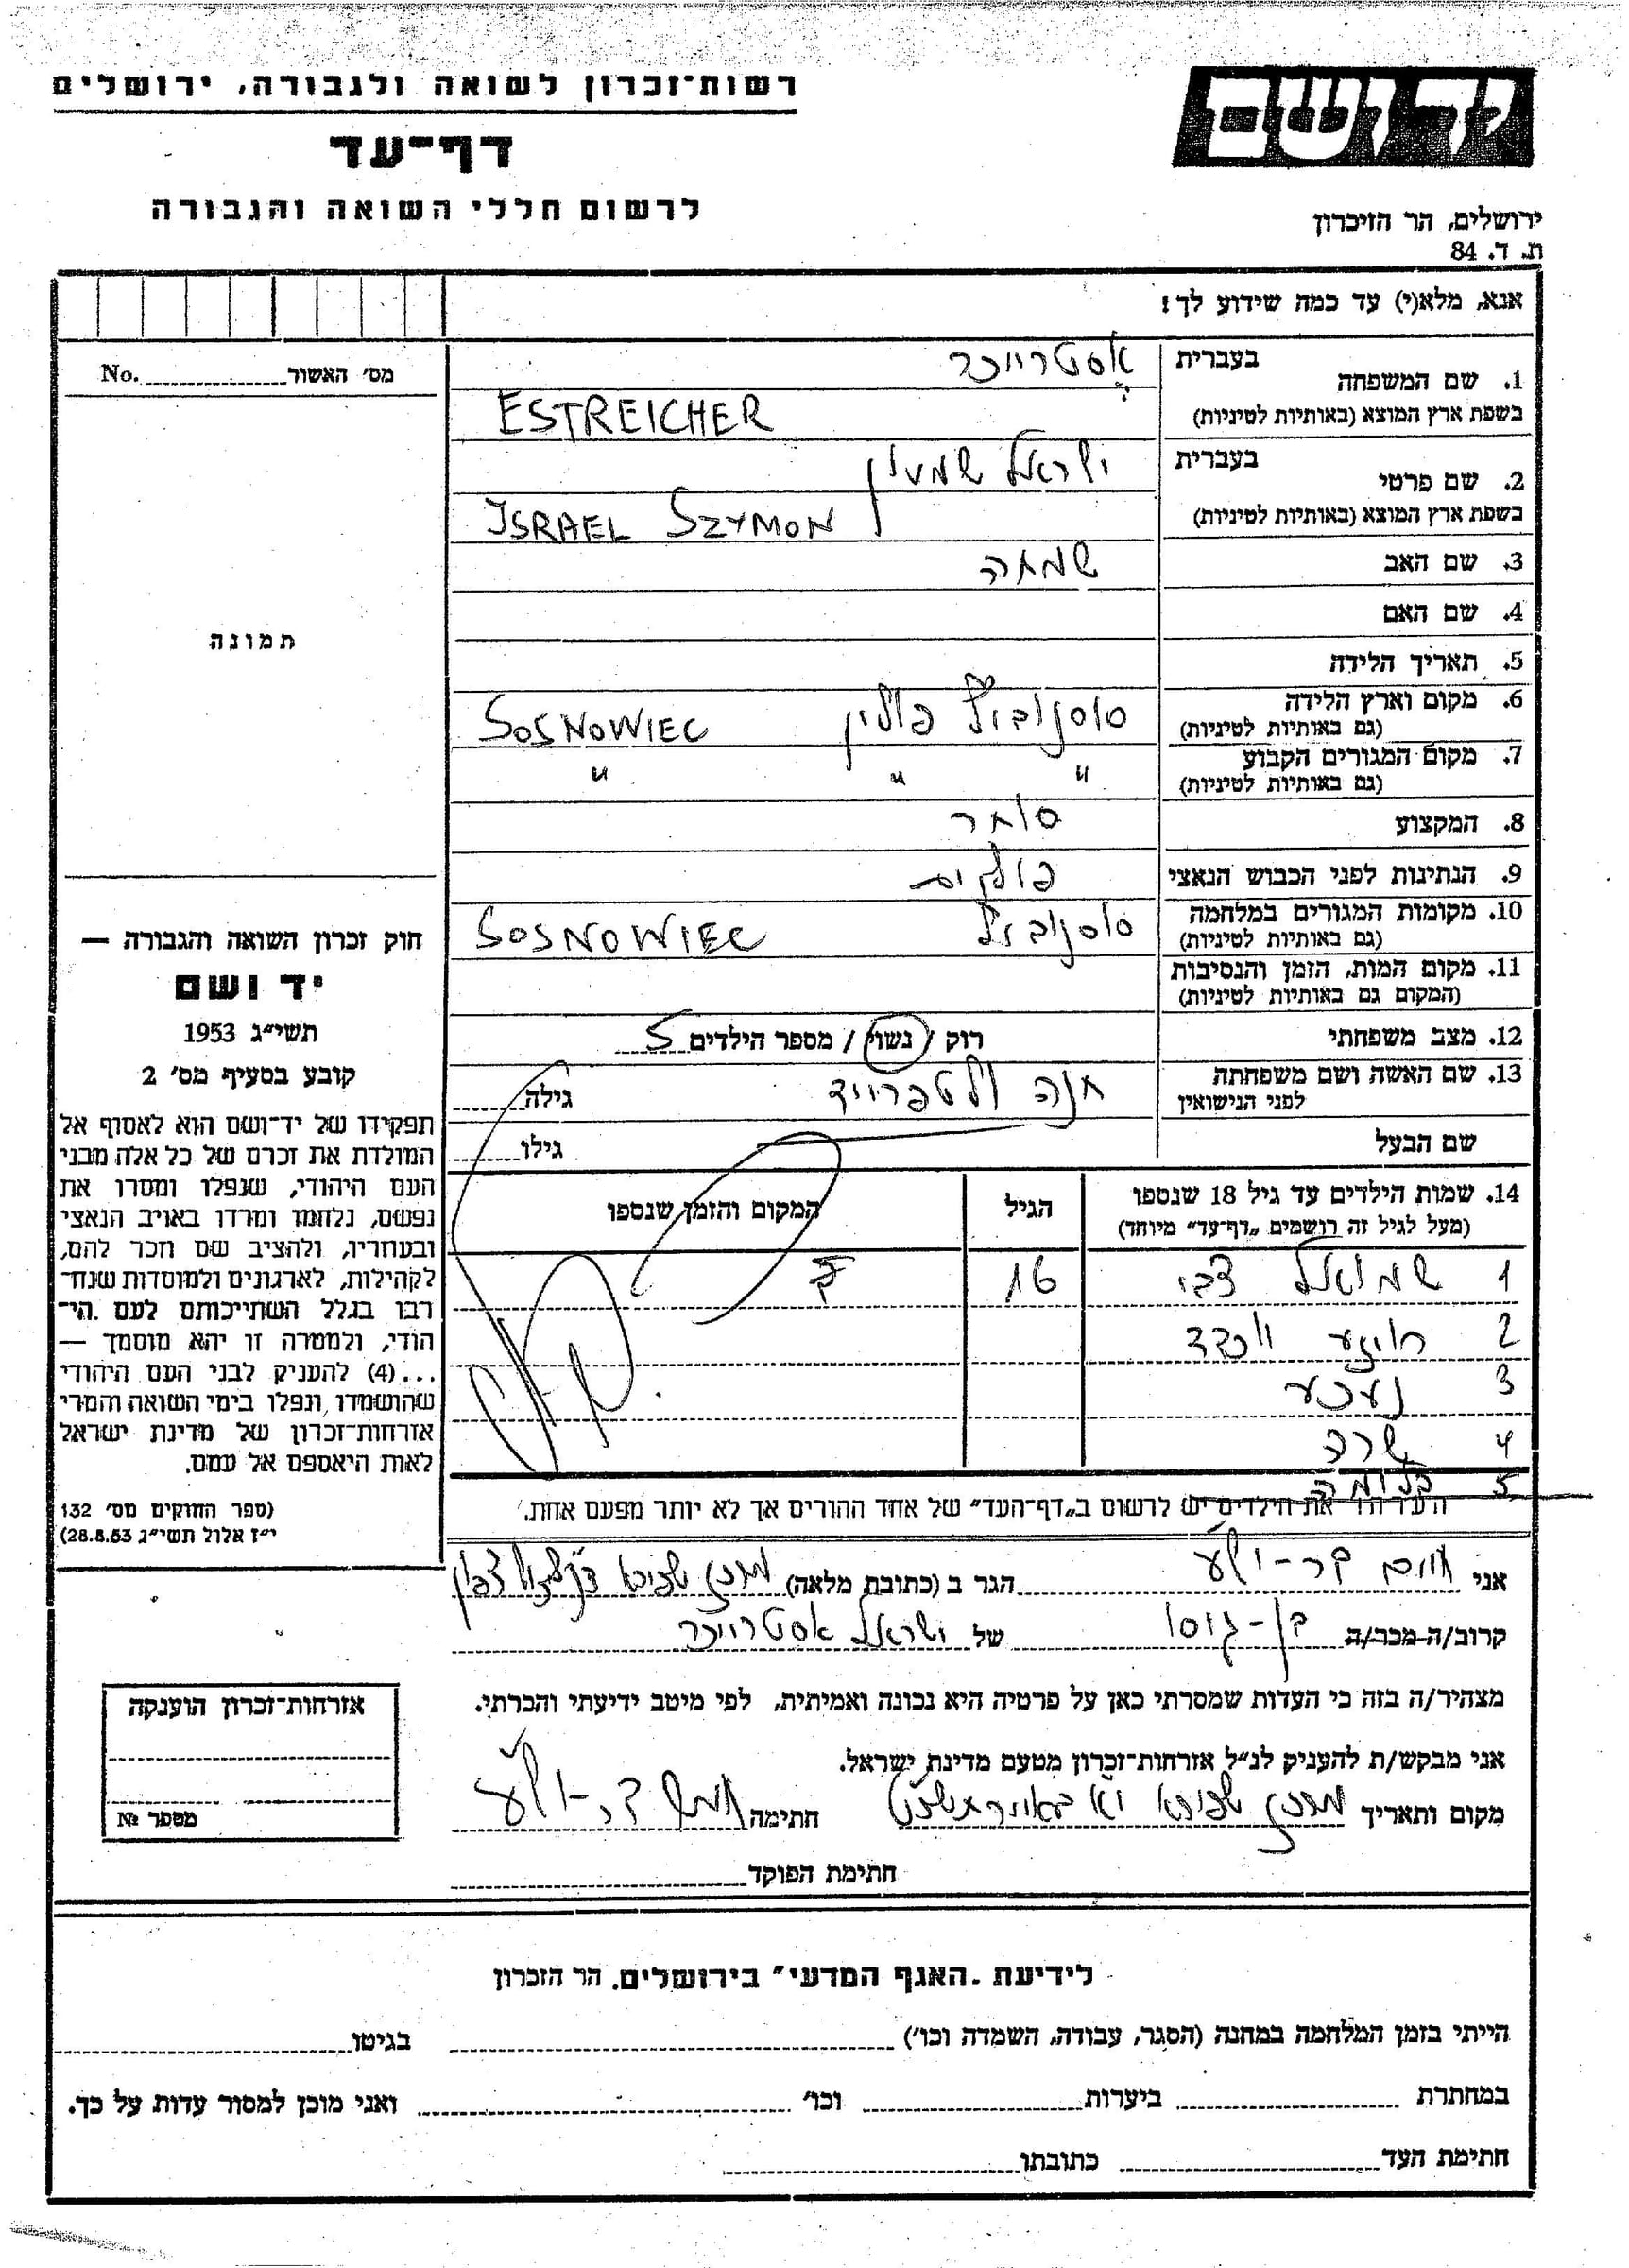 רשות-זכרון לשואה ולגבורה, ירושלים
ידושם
דף-עד
לרשום חללי השואה והגבורה
ירושלים, הר הזיכרון
ת. ד. 84
אנא, מלא(י) עד כמה שידוע לך!
מס׳ האשור No.
1. שם המשפחה בעברית אסטרייכר
בשפת ארץ המוצא (באותיות לטיניות) ESTREICHER
2. שם פרטי בעברית ישראל שמעון
בשפת ארץ המוצא (באותיות לטיניות) ISRAEL SZYMON
3. שם האב שמחה
4. שם האם
5. תאריך הלידה
6. מקום וארץ הלידה (גם באותיות לטיניות) סוסנוביץ פולין SOSNOWIEC
7. מקום המגורים הקבוע (גם באותיות לטיניות) " " "
8. המקצוע סוחר
9. הנתינות לפני הכבוש הנאצי
10. מקומות המגורים במלחמה (גם באותיות לטיניות) סוסנוביץ SOSNOWIEC
11. מקום המות, הזמן והנסיבות (המקום גם באותיות לטיניות)
12. מצב משפחתי רוק / נשוי / מספר הילדים 5
13. שם האשה ושם משפחתה לפני הנישואין חנה גילה
שם הבעל גילו
14. שמות הילדים עד גיל 18 שנספו
(מעל לגיל זה רושמים „דף-עד״ מיוחד)
הגיל
המקום והזמן שנספו
1 שמואל צבי 16
2
3
4 שרה
5
העד הזה את הילדים יש לרשום ב„דף-העד״ של אחד ההורים אך לא יותר מפעם אחת.
תמונה
חוק זכרון השואה והגבורה —
יד ושם
תשי״ג 1953
קובע בסעיף מס׳ 2
תפקידו של יד-ושם הוא לאסוף אל
המולדת את זכרם של כל אלה מבני
העם היהודי, שנפלו ומסרו את
נפשם, נלחמו ומרדו באויב הנאצי
ובעוזריו, ולהציב שם וזכר להם,
לקהילות, לארגונים ולמוסדות שנח-
רבו בגלל השתייכותם לעם הי-
הודי, ולמטרה זו יהא מוסמך —
...(4) להעניק לבני העם היהודי
שהושמדו ונפלו בימי השואה והמרי
אזרחות-זכרון של מדינת ישראל
לאות היאספם אל עמם.
(ספר החוקים מס׳ 132
י״ז אלול תשי״ג 28.8.53)
אני חיים בר-ישע הגר ב (כתובת מלאה)
קרוב/ה מכר/ה בן-גיסו של ישראל אסטרייכר
מצהיר/ה בזה כי העדות שמסרתי כאן על פרטיה היא נכונה ואמיתית, לפי מיטב ידיעתי והכרתי.
אני מבקש/ת להעניק לנ״ל אזרחות-זכרון מטעם מדינת ישראל.
מקום ותאריך חתימה
חתימת הפוקד
אזרחות-זכרון הוענקה
מספר №
לידיעת „האגף המדעי״ בירושלים, הר הזכרון
הייתי בזמן המלחמה במחנה (הסגר, עבודה, השמדה וכו׳) בגיטו
במחתרת ביערות וכו׳ ואני מוכן למסור עדות על כך.
חתימת העד כתובתו